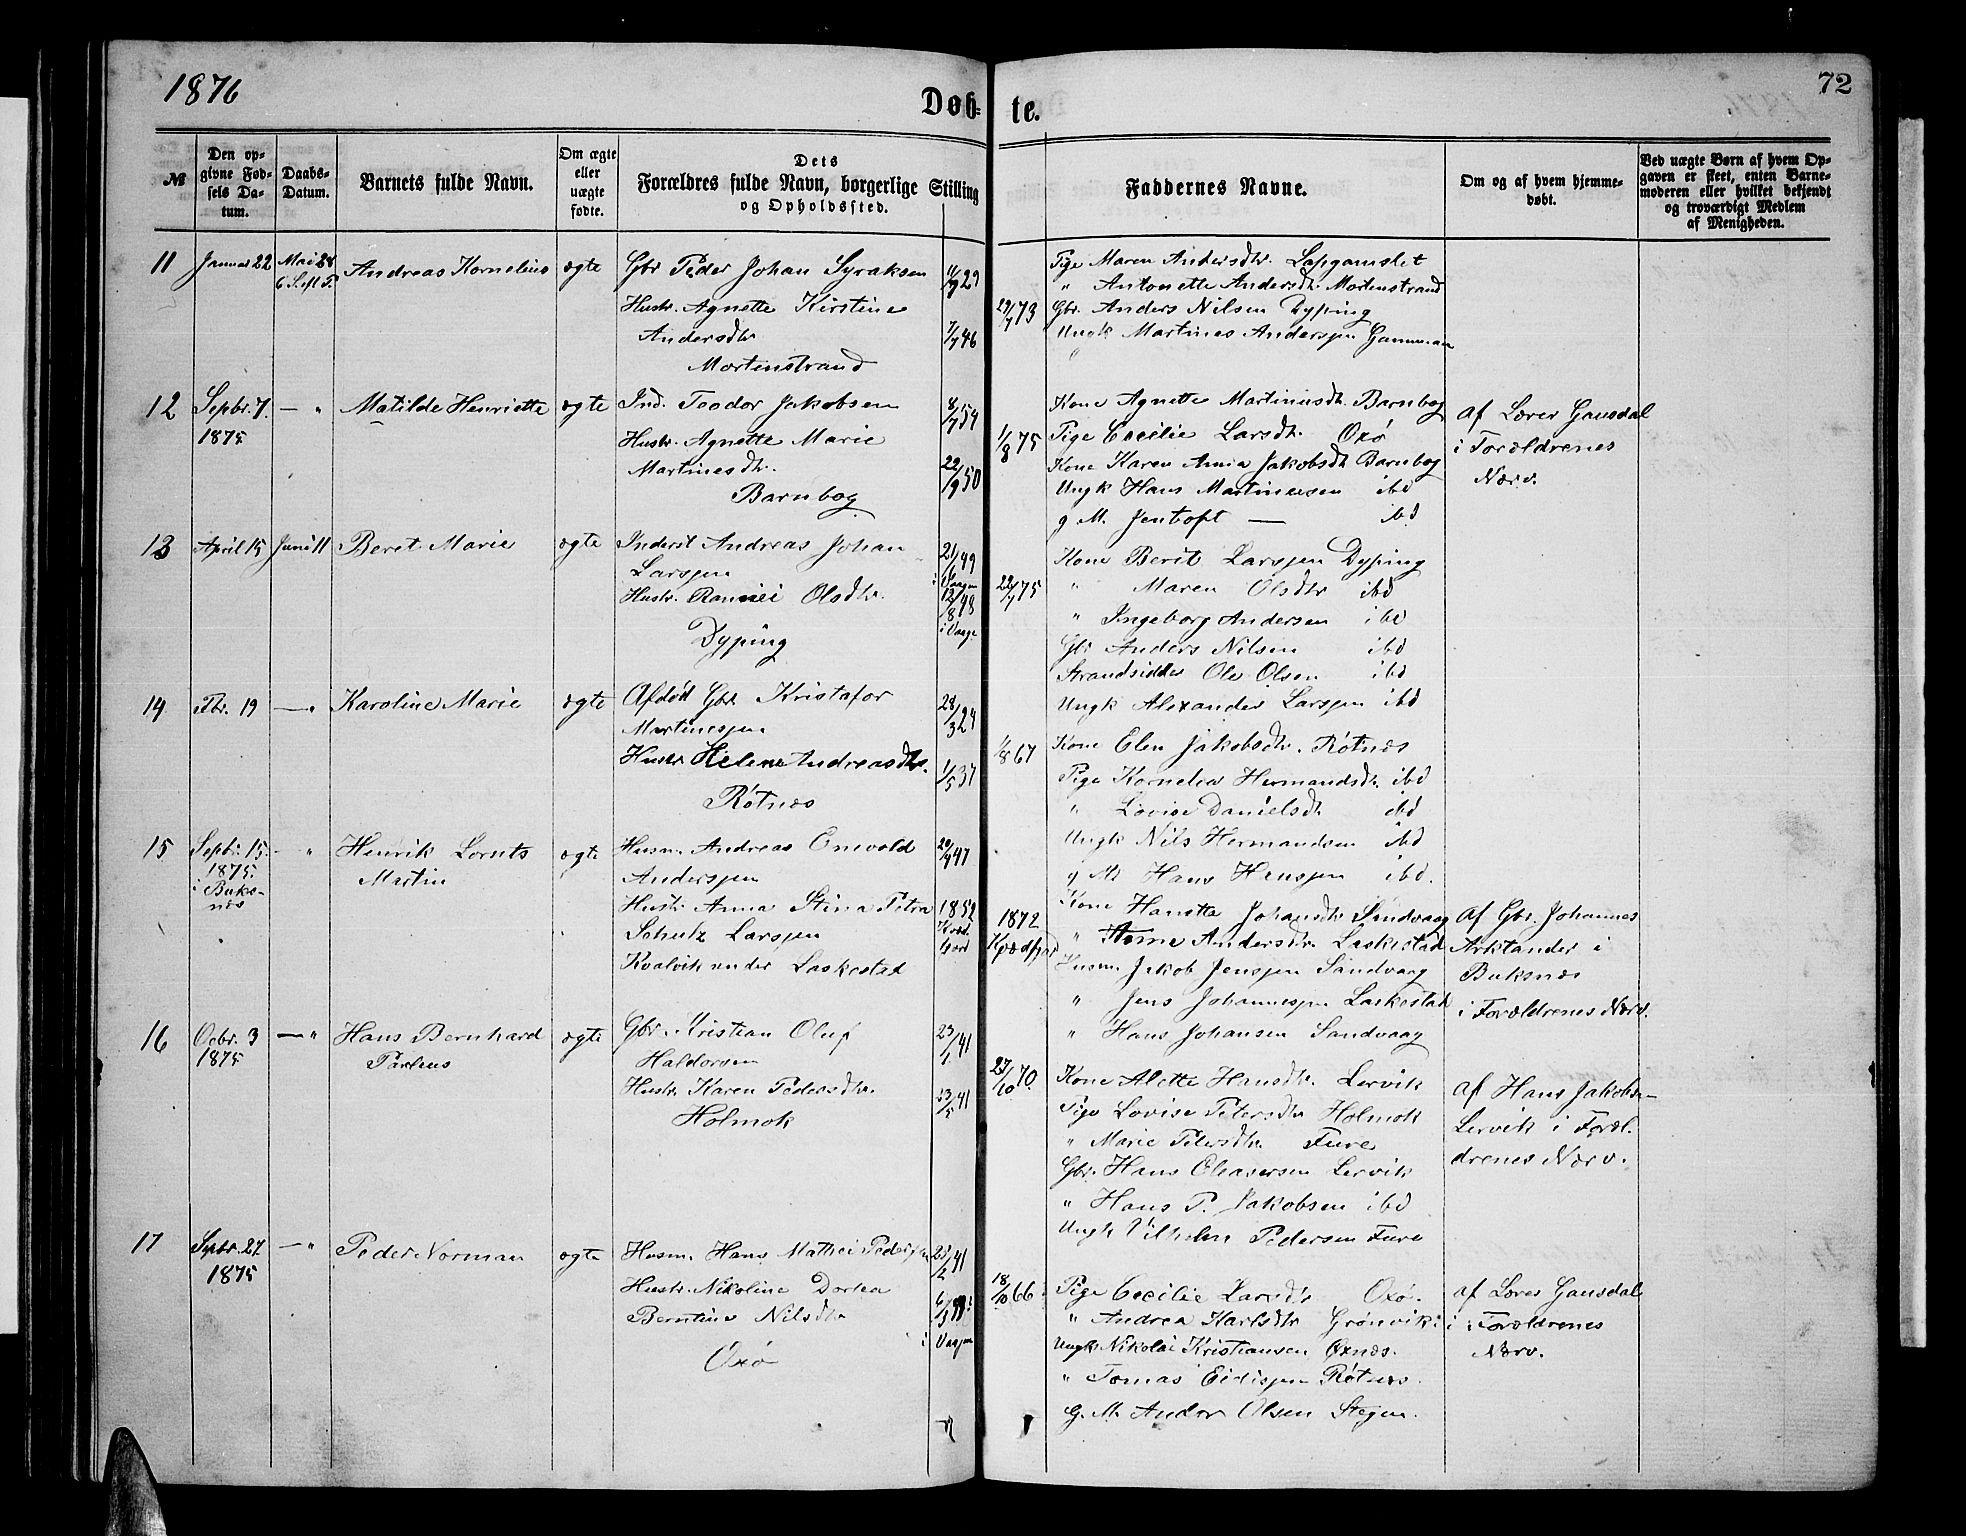 1876
Døb-
te.
72
№
Den op-
givne Fød-
sels Da-
tum.
Daabs-
Datum.
Barnets fulde Navn.
Om ægte
eller
uægte
fødte.
Dets
Forældres fulde Navn, borgerlige Stilling
og Opholdssted.
Faddernes Navne.
Om og af hvem hjemme-
døbt.
Ved uægte Børn af hvem Op-
gaven er skeet, enten Barne-
moderen eller hvilket bekjendt
og troværdigt Medlem
af Menigheden.
11
Januar 22
Mai 28
Andreas Kornelius
ægte
Gbr Peder Johan Syraksen
Hustr. Agnette Kirstine
7/7 46
Andersdtr
Mortenstrand
29/7 73
Pige Maren Andersdtr.
" Antonette Andersdtr Mortenstrand
Gbr. Anders Nilsen Dyping
Ungk Martines Andersjen
12
Septbr. 7.
1875
— "
Matilde Henriette
ægte
Ind. Teodor Jakobsen
8/7 54
Hustr. Agnette Marie
Martinesdtr.
22/9 50
Barnbog
1/8 75
Kone Agnette Martinusdtr. Barnbog
Pige Cecilie Larsdtr. Oxø
Kone Karen Anna Jakobsdtr Barnbog
Ungk Hans Martinussen ibd
g M. Jentoft — ibd
af Lærer Gausdal
i Forældrenes
Nærv.
13
April 15
Juni 11
Beret Marie
ægte
Inderst Andreas Johan
Larsjen
Hustr. Olsdtr.
Dyping
i Vaage
22/7 75
Kone Berit Larsjen Dyping
" Maren Olsdtr ibd
" Ingeborg Andersen ibd
Gbr Anders Nilsen ibd
Strandsidder Ole Olsen ibd
Ungk Alexander Larsjen ibd
14
19
— "
Karoline Marie
ægte
Afdød Gbr Kristafor
28/3 24
Martinesjen
Hustr Helene Andreasdtr.
1/5 37
Røtnes
1/8 67
Kone Elen Jakobsdtr. Røtnes
Pige Kornelia Hermandsdtr. ibd
" Lovise Danielsdtr ibd
Ungk Nils Hermandsen ibd
g M. Hans Hansjen ibd.
15
Septbr. 15.
1875.
i Buks-
nes
— "
Henrik Lornts
Martin
ægte
Husm. Andreas Enevold
20/9 47
Andersjen
Hustr. Anna Stina Petra
1852
Schutz Larsjen
Kvalvik under Laskestad
1872
Kvædfjord
Kone Hanette Johansdtr Sandvaag
" Andersdtr Laskestad
Husm. Jakob Jensjen Sandvaag
" Jens Johannesjen Laskestad
" Hans Johansen Sandvaag
Af Gbr. Johannes
Arktander i
Buksnes
i Forældrenes Nærv.
16
Ocbr. 3
1875
— "
Hans Bernhard
ægte
Gbr. Kristian Oluf
23/1 41
Haldorsen
Hustr Karen Pedersdtr.
23/5 41
Holmok
27/10 70.
Kone Alette Hansdtr. Lervik
Pige Lovise Petersdtr Holmok
" Marie Petersdtr. Fure
Gbr. Hans Eleasersen Lervik
" Hans P. Jakobsen ibd
Ungk Vilhelm Pedersen Fure
af Hans Jakobs-
Lervik i Foræl.
drenes Nærv.
17
Septbr. 27
1875
— "
Peder Norman
ægte
Husm. Hans Mathei Pedersjen
Hustr. Nikoline Dortea
Berntine Nilsdtr
i Vaagen
Oxø
18/10 66
Pige Cecilie Larsdtr Oxø.
" Andrea Karlsdtr Grønvik
Ungk Nikolai Kristiansen Øxnes.
" Tomas Eidisjen Røtnes.
G. M. Andor Olsen Stegen.
af Lærer Gausdal
i Forældrenes
Nærv.